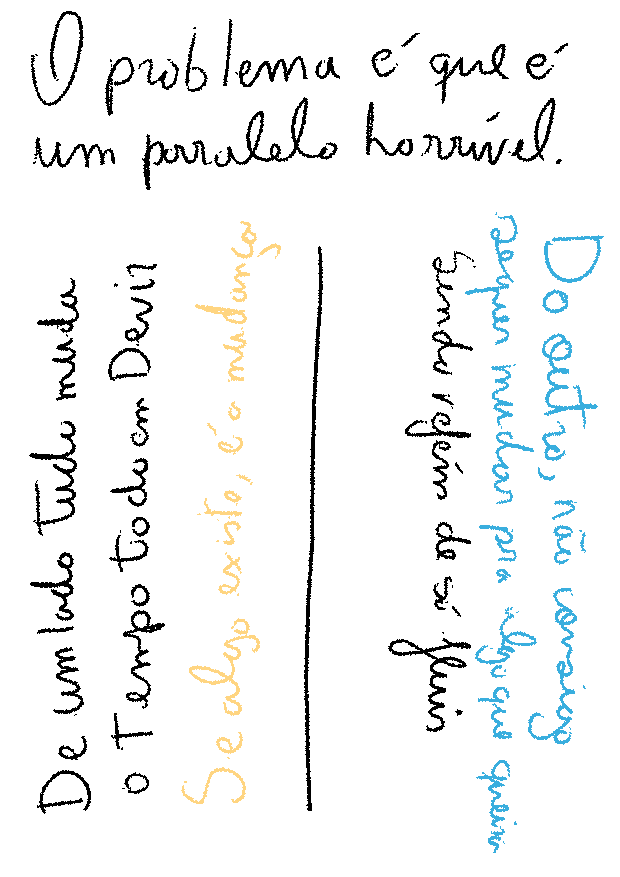 O problema é que é
um parralelo horrível.
De um lado tudo muda
o Tempo todo em Devir
Se algo existe, é a mudança
Do outro, não consigo
sequer mudar pra algo que queira
Sendo refém de só fluir